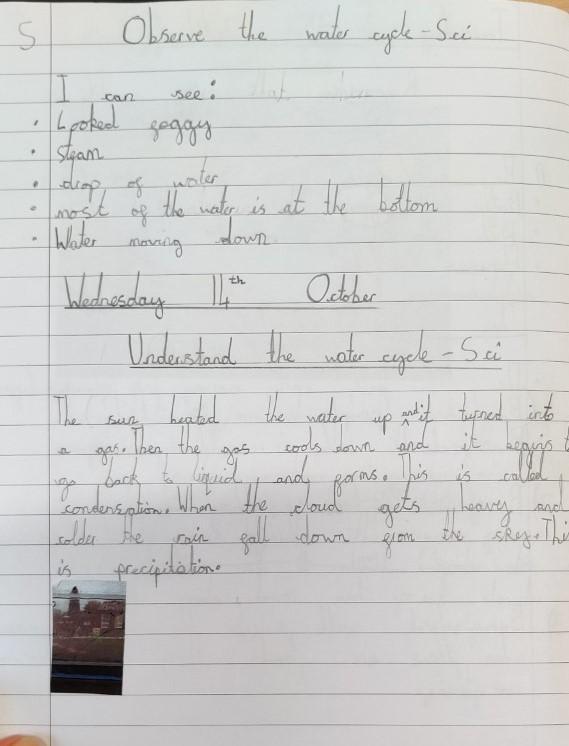 5
Observe the water cycle - Sci
I can see:
• Looked foggy
• Steam
• drop of water
• most of the water is at the bottom
• Water moving down
Wednesday 14th October
Understand the water cycle - Sci
The sun heated the water up and it turned into
a gas. Then the gas cools down and it begins t
go back to liquid, and forms. This is called
condensation. When the cloud gets heavy and
colder the rain fall down from the skey. Thi
is precipitation.